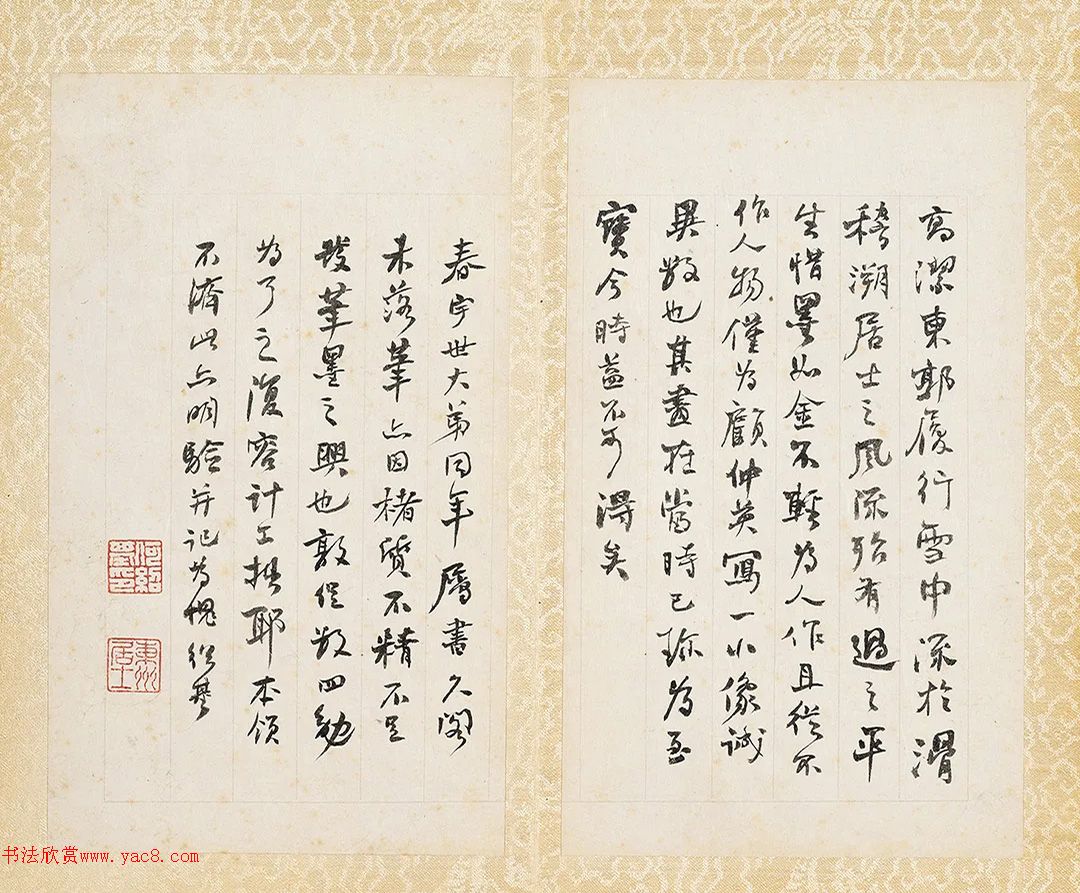 高潔東郭履行雪中深於滑
稽溯居士之風流殆有過之平
生惜墨如金不輕為人作且從不
作人物僅為顧仲英寫一小像誠
異数也其畫在當時已珍為至
寶今時益不可得矣
春宇世大弟同年屬書久閣
未落筆亦因楮質不精不足
發筆墨之興也敦促数四勉
為了之復容計工拙耶本領
不濟此亦明驗并記為愧紹基
何紹基印
東洲居士
书法欣赏www.yac8.com